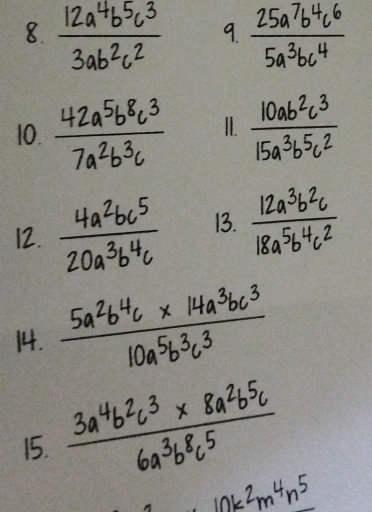 8. 12a⁴b⁵c³ / 3ab²c² 9. 25a⁷b⁴c⁶ / 5a³bc⁴
10. 42a⁵b⁸c³ / 7a²b³c 11. 10ab²c³ / 15a³b⁵c²
12. 4a²bc⁵ / 20a³b⁴c 13. 12a³b²c / 18a⁵b⁴c²
14. 5a²b⁴c × 14a³bc³ / 10a⁵b³c³
15. 3a⁴b²c³ × 8a²b⁵c / 6a³b⁸c⁵
10k²m⁴n⁵